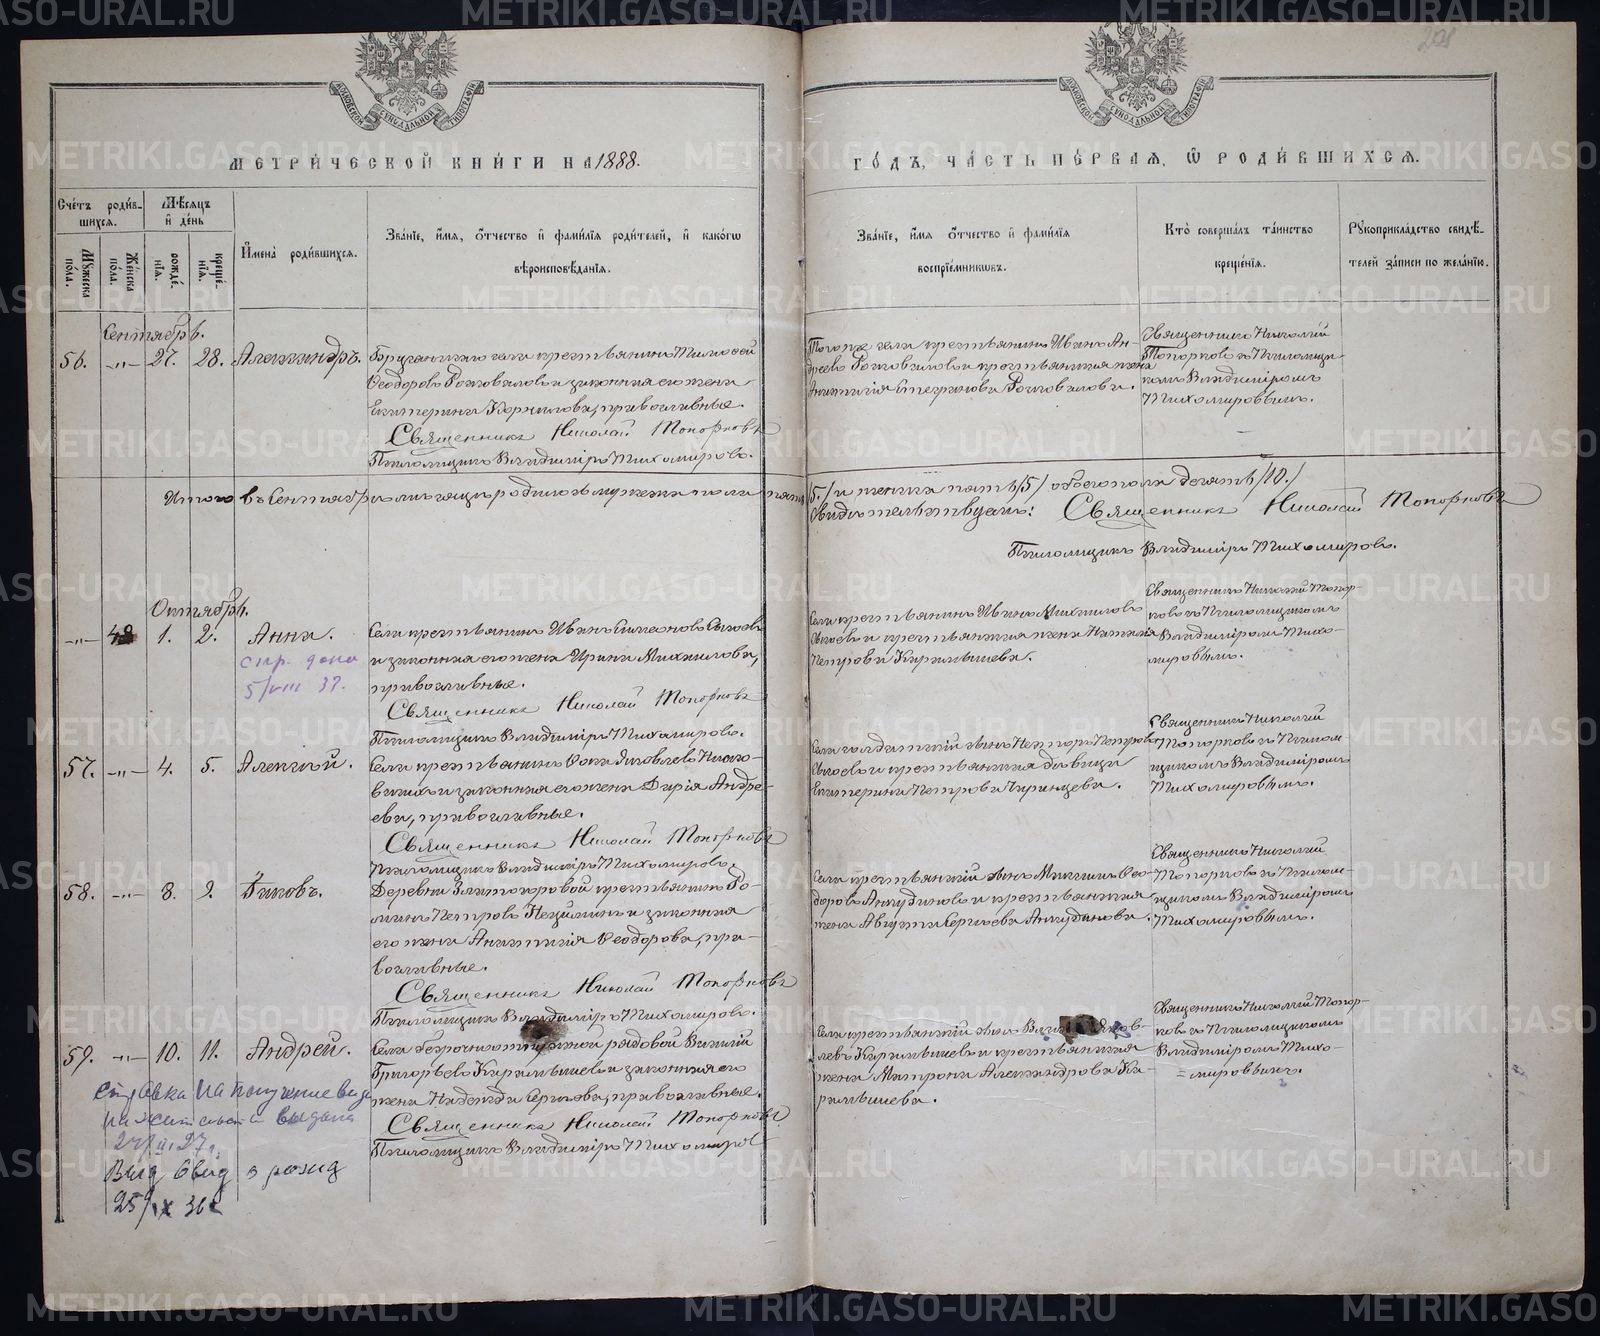 201
МОСКОВСКОЙ СѴНОДАЛЬНОЙ ТИПОГРАФІИ
МОСКОВСКОЙ СѴНОДАЛЬНОЙ ТИПОГРАФІИ
МЕТРИ́ЧЕСКОЙ КНИ́ГИ НА 1888.
ГО́ДЪ, ЧА́СТЬ ПЕ́РВАЯ, Ѡ РОДИ́ВШИХСЯ.
Сче́тъ роди́вшихся.
Му́жеска по́ла.
Же́нска по́ла.
Мѣ́сяцъ и҆ де́нь
рожде́нїя.
креще́нїя.
И҆мена̀ роди́вшихся.
Зва́нїе, и҆́мя, ѻ҆́тчество и҆ фами́лїя роди́телей, и҆ како́гѡ
вѣроисповѣ́данїя.
Зва́нїе, и҆́мя ѻ҆́тчество и҆ фами́лїя
воспрїе́мникѡвъ.
Кто̀ соверша́лъ та́инство
креще́нїя.
Рꙋкоприкла́дство свидѣ́-
телей за́писи по жела́нїю.
Сентябрь.
56. -"- 27. 28. Александръ.
крестьянинъ Тимофей
Ѳеодоровъ и законная его жена
Екатерина Корнилова, православные.
Священникъ Николай Топорковъ
Псаломщикъ Владиміръ Тихомировъ.
Того же села крестьянинъ Иванъ Ан-
дреевъ и крестьянская жена
Анастасія
Священникъ Николай
Топорковъ съ Псаломщи-
комъ Владиміромъ
Тихомировымъ.
Итого въ Сентябрѣ мѣсяцѣ родилось мужеска пола пять
/5/ и женска пять /5/ обоего пола десять /10./
Свидѣтельствуемъ: Священникъ Николай Топорковъ
Псаломщикъ Владиміръ Тихомировъ.
Октябрь.
-"- 48 1. 2. Анна.
спр. дана
5/VIII 37.
Села крестьянинъ Иванъ Симеоновъ Сысоевъ
и законная его жена Ирина Михаилова,
православные.
Священникъ Николай Топорковъ
Псаломщикъ Владиміръ Тихомировъ.
Села крестьянинъ Иванъ Михаиловъ
Сысоевъ и крестьянская жена Наталія
Петрова Карамышева.
Священникъ Николай Топор-
ковъ съ Псаломщикомъ
Владиміромъ Тихо-
мировымъ.
57. -"- 4. 5. Алексій.
Села крестьянинъ Ѳока Яковлевъ
и законная его жена Дарія Андре-
ева, православные.
Священникъ Николай Топорковъ
Псаломщикъ Владиміръ Тихомировъ.
Села солдатскій сынъ Петровъ
Сысоевъ и крестьянская дѣвица
Екатерина Петрова
Священникъ Николай
Топорковъ съ Псалом-
щикомъ Владиміромъ
Тихомировымъ.
58. -"- 8. 9. Іаковъ.
Деревни Златогоровой крестьянинъ Ро-
манъ Петровъ и законная
его жена Анастасія Ѳеодорова, пра-
вославные.
Священникъ Николай Топорковъ
Псаломщикъ Владиміръ Тихомировъ.
Села крестьянскій сынъ Ѳео-
доровъ Анкудиновъ и крестьянская
жена Августа Сергіева Анкудинова.
Священникъ Николай
Топорковъ съ Псалом-
щикомъ Владиміромъ
Тихомировымъ.
59. -"- 10. 11. Андрей.
Села безсрочноотпускной рядовой Василій
Григорьевъ Карамышевъ и законная его
жена Надежда Сергіева, православные.
Священникъ Николай Топорковъ
Псаломщикъ Владиміръ Тихомировъ
Села крестьянскій сынъ
Карамышевъ и крестьянская
жена Матрона Александрова Ка-
рамышева.
Священникъ Николай Топор-
ковъ съ Псаломщикомъ
Владиміромъ Тихо-
=мировымъ.
Справка на получение вида
на жительство выдана
27 г.
Выд Свид о рожд
25/IX 36
METRIKI.GASO-URAL.RU